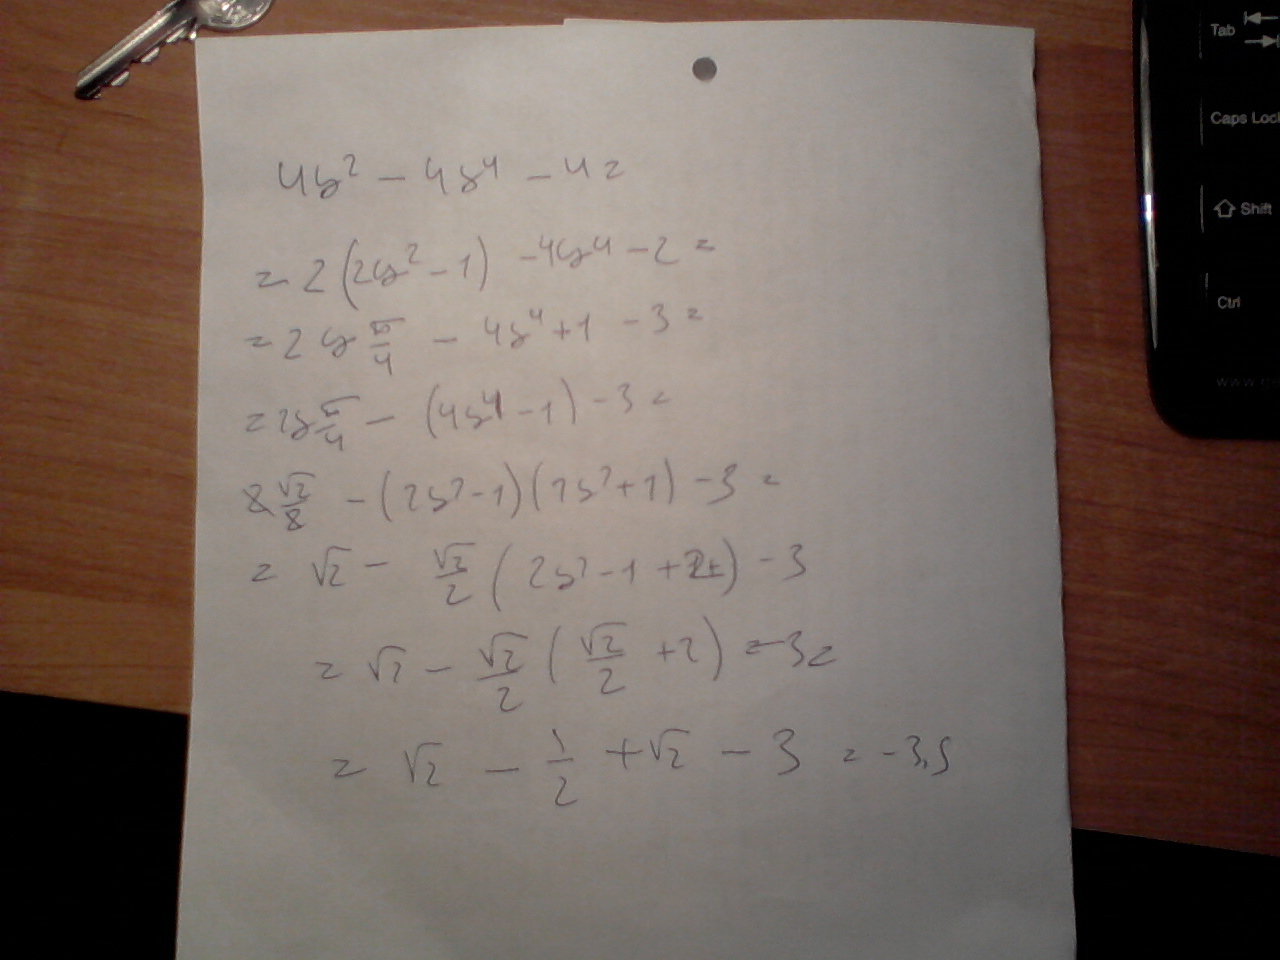 4y² - 4y⁴ - 4 =
= 2(2y² - 1) - 4y⁴ - 2 =
= 2 y π/4 - 4y⁴ + 1 - 3 =
= 2y π/4 - (4y⁴ - 1) - 3 =
8 √2/8 - (2y² - 1)(2y² + 1) - 3 =
= √2 - √2/2 (2y² - 1 + 2) - 3
= √2 - √2/2 (√2/2 + 2) - 3 =
= √2 - 1/2 + √2 - 3 = -3,5
Tab
Caps Loc
Shift
Ctrl